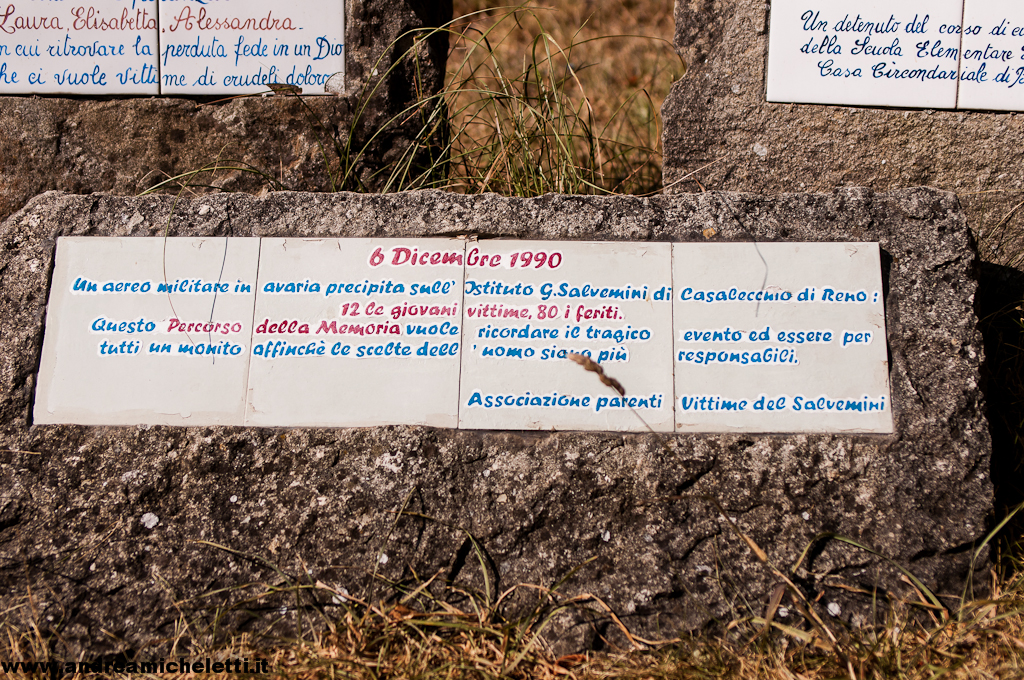 Laura, Elisabetta, Alessandra.
n cui ritrovare la perduta fede in un Dio
he ci vuole vittime di crudeli dolor
Un detenuto del corso di
della Scuola Elementare
Casa Circondariale di
6 Dicembre 1990
Un aereo militare in avaria precipita sull' Istituto G. Salvemini di Casalecchio di Reno:
12 le giovani vittime, 80 i feriti.
Questo Percorso della Memoria, vuole ricordare il tragico evento ed essere per
tutti un monito affinchè le scelte dell'uomo siano più responsabili.
Associazione parenti Vittime del Salvemini
www.andreamicheletti.it